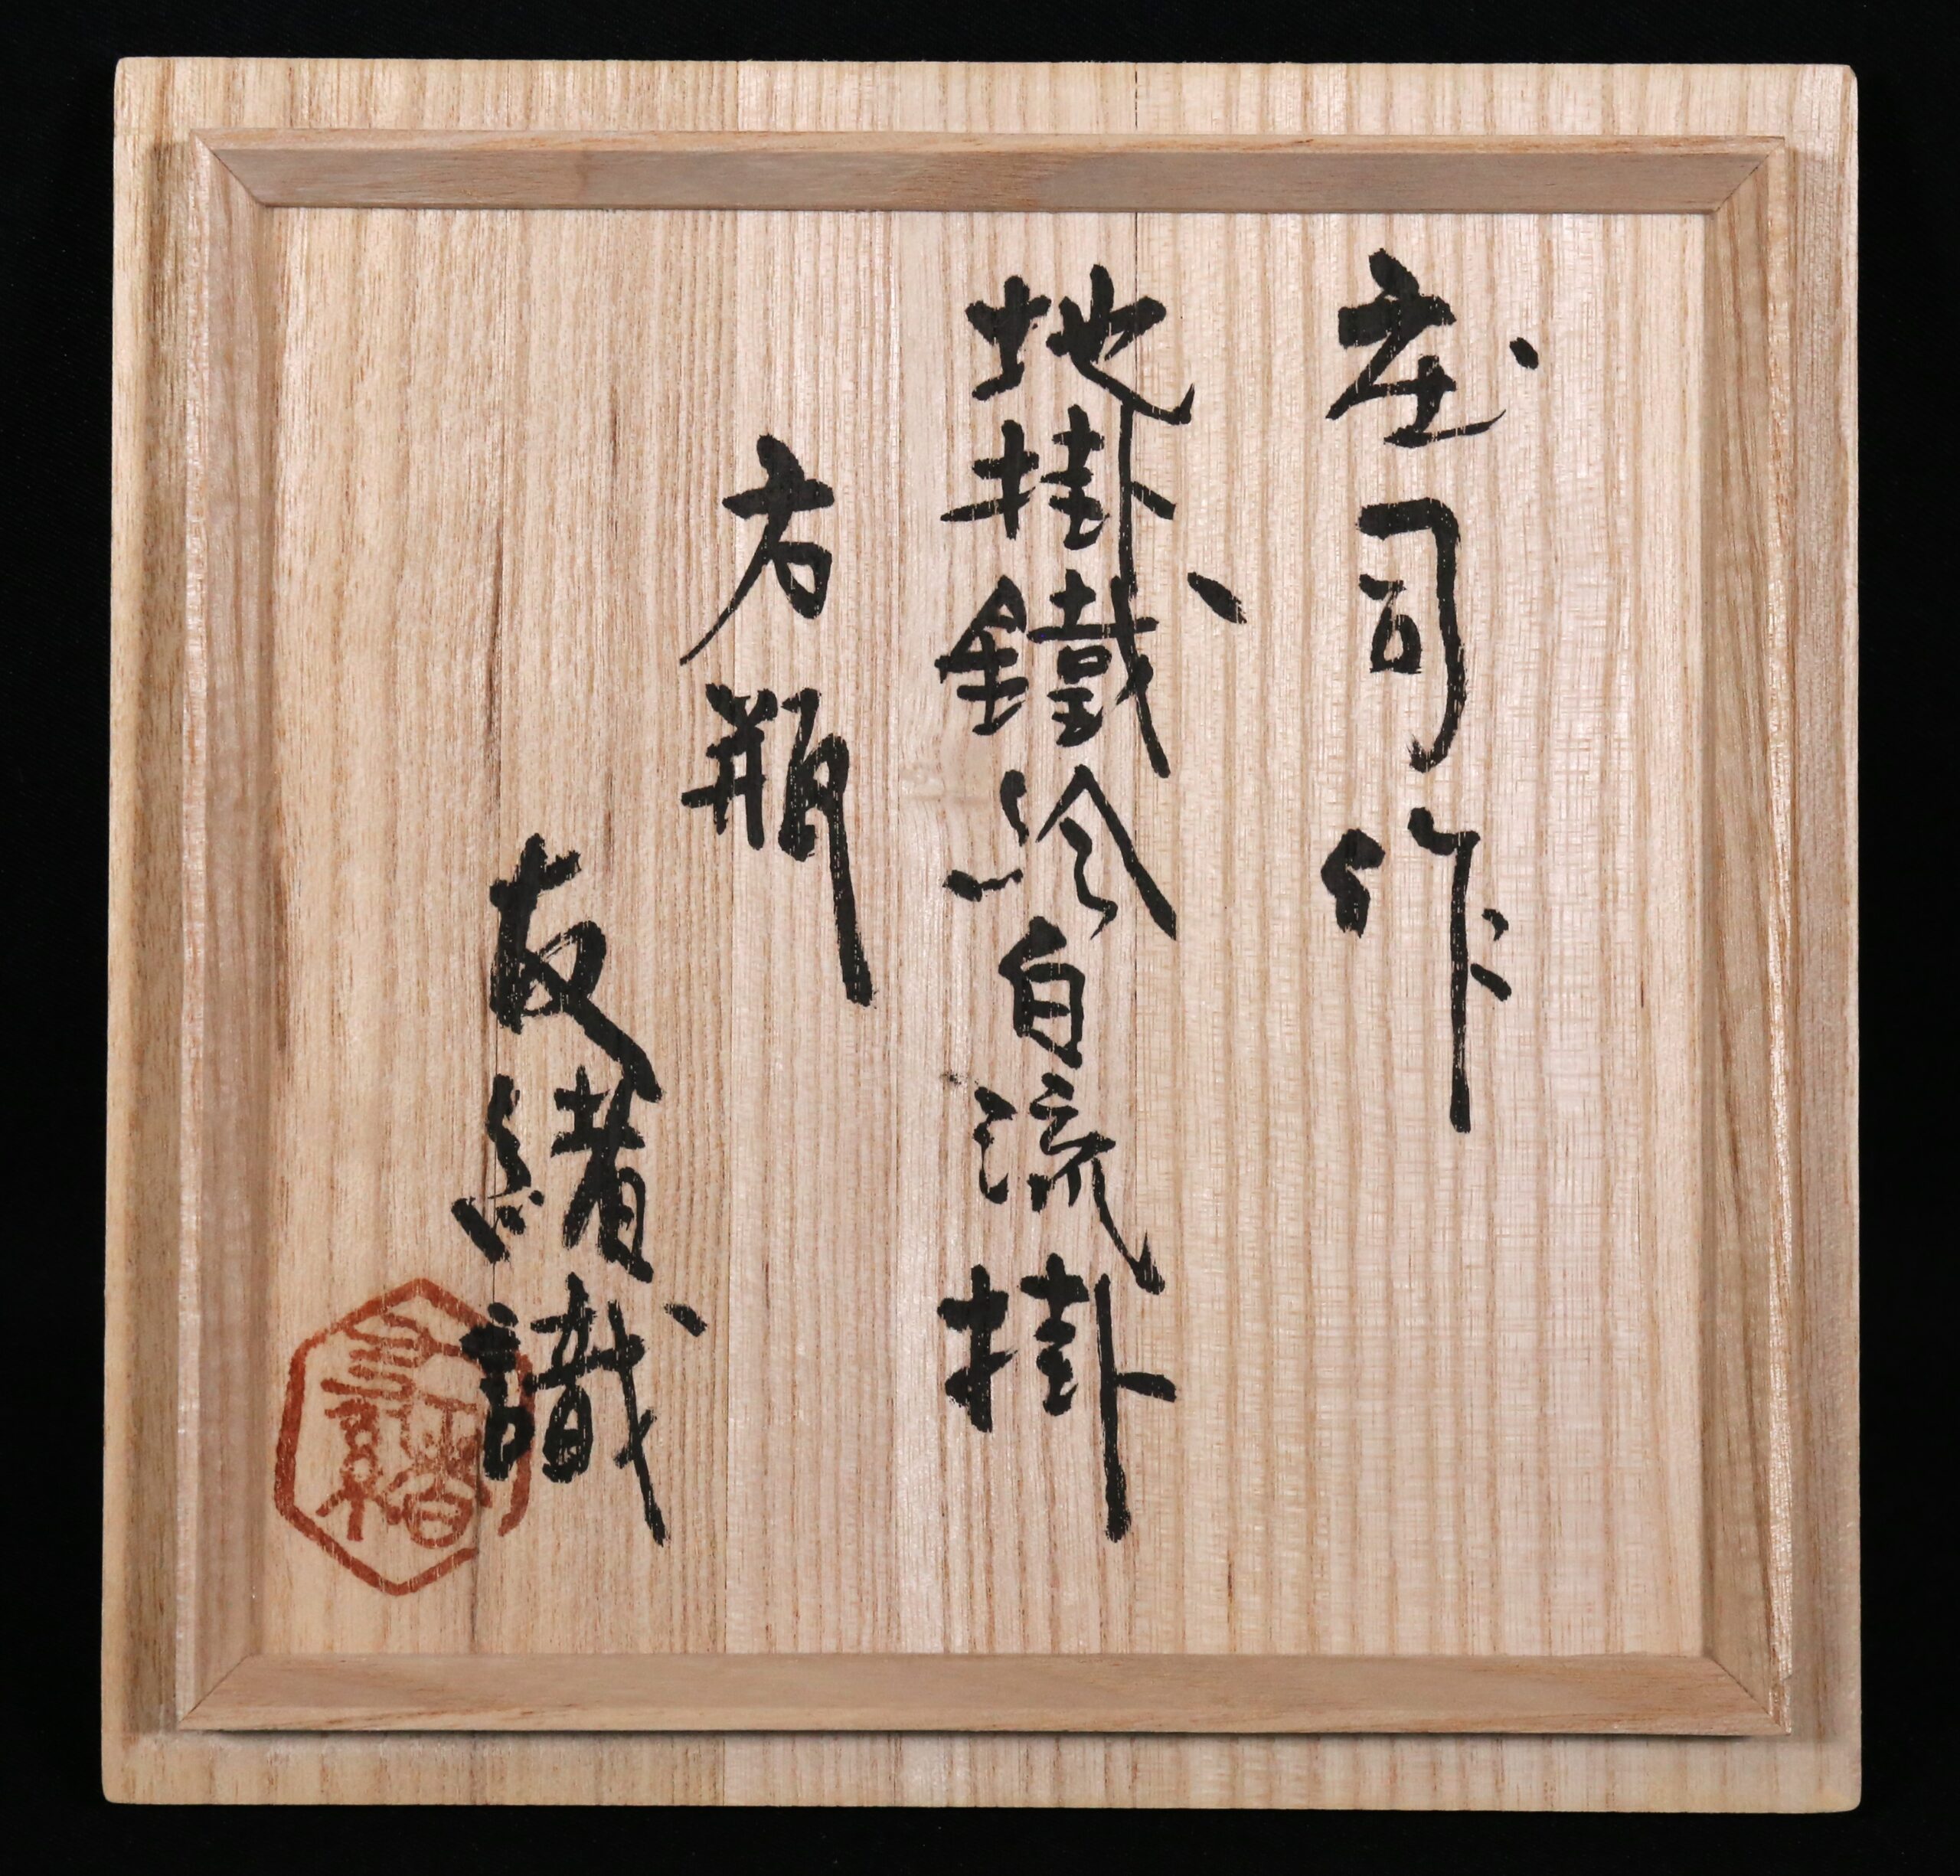 庄司作
地掛鐵絵白流掛
方瓶
友緒識